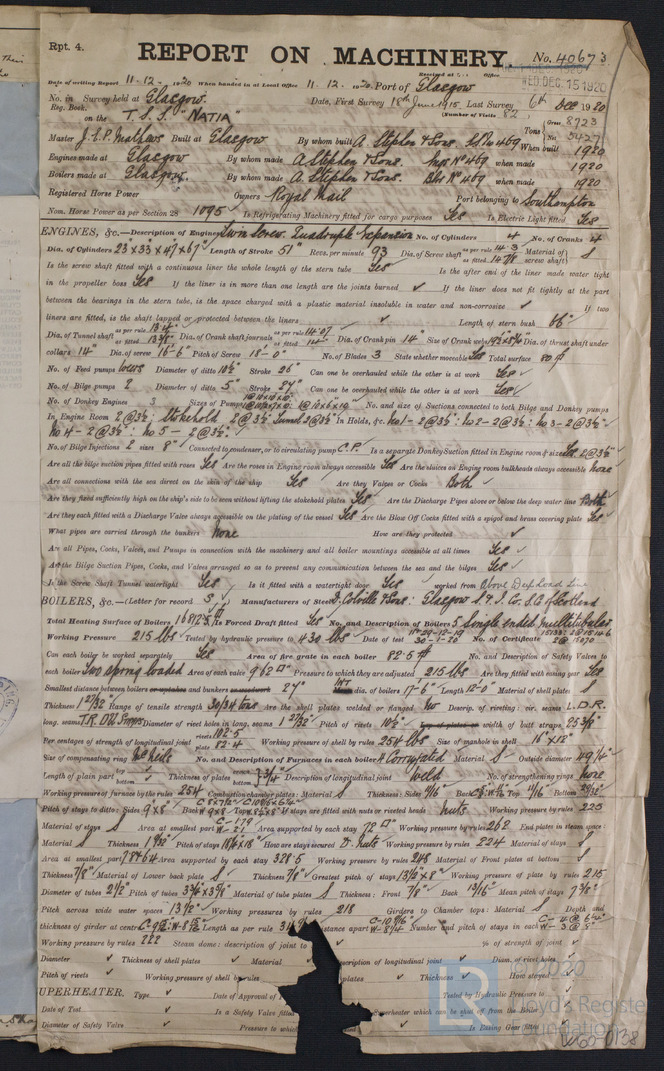 Rpt. 4.
REPORT ON MACHINERY. No. 40673
Received at Office WED. DEC. 15 1920
Date of writing Report 11-12-1920 When handed in at Local Office 11-12-20 Port of Glasgow
No. in Reg. Book. Survey held at Glasgow. Date, First Survey 18th June 1915 Last Survey 6th Dec 1920
on the T.S.S. "NATIA" (Number of Visits 82)
Tons Gross 8723 Net 5427
Master J.E.P. Mathews Built at Glasgow By whom built A Stephen & Sons. When built 1920
Engines made at Glasgow By whom made A Stephen & Sons. No 469 when made 1920
Boilers made at Glasgow. By whom made A. Stephen & Sons. Blr No 469 when made 1920
Registered Horse Power Owners Royal Mail Port belonging to Southampton
Nom. Horse Power as per Section 28 1095 Is Refrigerating Machinery fitted for cargo purposes Yes Is Electric Light fitted Yes
ENGINES, &c.—Description of Engines Twin Screw. Quadruple Expansion No. of Cylinders 4 No. of Cranks 4
Dia. of Cylinders 23"x33"x47"x67" Length of Stroke 51" Revs. per minute 93 Dia. of Screw shaft as per rule 14.3 as fitted 14 7/8 Material of screw shaft S
Is the screw shaft fitted with a continuous liner the whole length of the stern tube Yes Is the after end of the liner made water tight
in the propeller boss Yes If the liner is in more than one length are the joints burned ✓ If the liner does not fit tightly at the part
between the bearings in the stern tube, is the space charged with a plastic material insoluble in water and non-corrosive ✓ If two
liners are fitted, is the shaft lapped or protected between the liners ✓ Length of stern bush 66"
Dia. of Tunnel shaft as per rule 13.4" as fitted 13 7/8" Dia. of Crank shaft journals as per rule 14.07 as fitted 14" Dia. of Crank pin 14" Size of Crank webs Dia. of thrust shaft under
collars 14" Dia. of screw 16-6" Pitch of Screw 18-0" No. of Blades 3 State whether moveable Yes Total surface 80 ft
No. of Feed pumps Diameter of ditto 10½" Stroke 26" Can one be overhauled while the other is at work Yes
No. of Bilge pumps 2 Diameter of ditto 5" Stroke 27" Can one be overhauled while the other is at work Yes
No. of Donkey Engines 3 Sizes of Pumps No. and size of Suctions connected to both Bilge and Donkey pumps
In Engine Room 2@3½: Stokehold 2@3½ Tunnel 2@3½ In Holds, &c. No 1-2@3½: No 2-2@3½: No 3-2@3½:
No 4-2@3½: No 5-2@3½:
No. of Bilge Injections 2 sizes 8" Connected to condenser, or to circulating pump C.P. Is a separate Donkey Suction fitted in Engine room & size Yes 2@3½"
Are all the bilge suction pipes fitted with roses Yes Are the roses in Engine room always accessible Yes Are the sluices on Engine room bulkheads always accessible none
Are all connections with the sea direct on the skin of the ship Yes Are they Valves or Cocks Both
Are they fixed sufficiently high on the ship's side to be seen without lifting the stokehold plates Yes Are the Discharge Pipes above or below the deep water line Both
Are they each fitted with a Discharge Valve always accessible on the plating of the vessel Yes Are the Blow Off Cocks fitted with a spigot and brass covering plate Yes
What pipes are carried through the bunkers None How are they protected ✓
Are all Pipes, Cocks, Valves, and Pumps in connection with the machinery and all boiler mountings accessible at all times Yes ✓
Are the Bilge Suction Pipes, Cocks, and Valves arranged so as to prevent any communication between the sea and the bilges Yes ✓
Is the Screw Shaft Tunnel watertight Yes Is it fitted with a watertight door Yes worked from Above Deep Load Line
BOILERS, &c.—(Letter for record S) Manufacturers of Steel D. Colville & Sons: Glasgow S. & I. Co. S.C. of Scotland
Total Heating Surface of Boilers Is Forced Draft fitted Yes No. and Description of Boilers 5 Single ended multitubular
Working Pressure 215 lbs Tested by hydraulic pressure to 430 lbs Date of test 29-12-19 30-1-20 No. of Certificate
Can each boiler be worked separately Yes Area of fire grate in each boiler 82.5 ft No. and Description of Safety Valves to
each boiler Two spring loaded Area of each valve 9.62 Pressure to which they are adjusted 215 lbs Are they fitted with easing gear Yes
Smallest distance between boilers or uptakes and bunkers or woodwork 27" INT dia. of boilers 17-6" Length 12-0" Material of shell plates S
Thickness 1 21/32 Range of tensile strength 30/34 tons Are the shell plates welded or flanged No Descrip. of riveting: cir. seams L.D.R.
long. seams T.R.D.B. Straps Diameter of rivet holes in long. seams 1 21/32" Pitch of rivets 10½" Lap of plates or width of butt straps 25 3/8"
Per centages of strength of longitudinal joint rivets 102.5 plate 82.4 Working pressure of shell by rules 254 lbs Size of manhole in shell 16"x12"
Size of compensating ring No. and Description of Furnaces in each boiler 4 Corrugated Material S Outside diameter 49¼"
Length of plain part top bottom Thickness of plates crown bottom 3/4" Description of longitudinal joint Weld No. of strengthening rings none
Working pressure of furnace by the rules 254 Combustion chamber plates: Material S Thickness: Sides 11/16" Back Top 11/16" Bottom
Pitch of stays to ditto: Sides 9"x8" Back Top If stays are fitted with nuts or riveted heads Nuts Working pressure by rules 225
Material of stays S Area at smallest part Area supported by each stay 72 Working pressure by rules 262 End plates in steam space
Material S Thickness 1 9/32 Pitch of stays How are stays secured D. nuts Working pressure by rules 224 Material of stays S
Area at smallest part Area supported by each stay 328.5 Working pressure by rules 248 Material of Front plates at bottom S
Thickness 7/8" Material of Lower back plate S Thickness 7/8" Greatest pitch of stays 13½"x8" Working pressure of plate by rules 215
Diameter of tubes 2½" Pitch of tubes 3¾ x 3 5/8" Material of tube plates S Thickness: Front 7/8" Back 13/16" Mean pitch of stays 7 3/8"
Pitch across wide water spaces 13½" Working pressures by rules 218 Girders to Chamber tops: Material S Depth and
thickness of girder at centre Length as per rule Distance apart Number and pitch of stays in each
Working pressure by rules 222 Steam dome: description of joint to % of strength of joint ✓
Diameter ✓ Thickness of shell plates ✓ Description of longitudinal joint ✓ Diam. of rivet holes
Pitch of rivets ✓ Working pressure of shell by rules plates ✓ Thickness ✓ How stayed ✓
UPERHEATER. Type ✓ Date of Approval of Tested by Hydraulic Pressure to
Date of Test Is a Safety Valve fitted Superheater which can be shut off from the Boiler
Diameter of Safety Valve ✓ Pressure to which ✓ Is Easing Gear fitted
© 2020
Lloyd's Register
Foundation
W60-0138